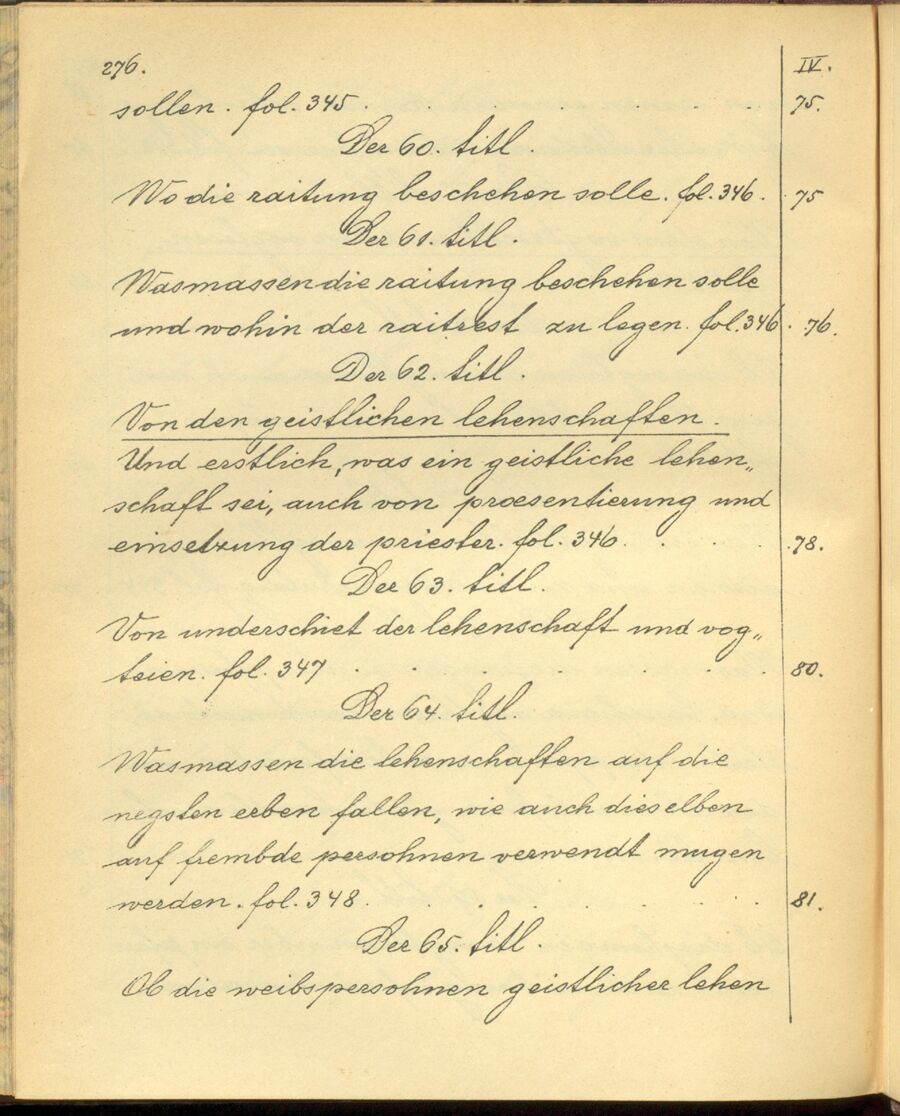 276. IV.
sollen. fol. 345. 75.
Der 60. titl
Wo die raitung beschehen solle. fol. 346. 75
Der 61. titl.
Wasmassen die raitung beschehen solle
und wohin der raitrest zu legen. fol. 346. 76.
Der 62. titl.
Von den geistlichen lehenschaften.
Und erstlich, was ein geistliche lehen„
schaft sei, auch von præsentierung und
einsetzung der priester. fol. 346. 78.
Der 63. titl.
Von underschiet der lehenschaft und vog„
teien. fol. 347 80.
Der 64. titl.
Wasmassen die lehenschaften auf die
negsten erben fallen, wie auch dieselben
auf frembde persohnen verwendt mugen
werden. fol. 348. 81.
Der 65. titl.
Ob die weibspersohnen geistlicher lehen